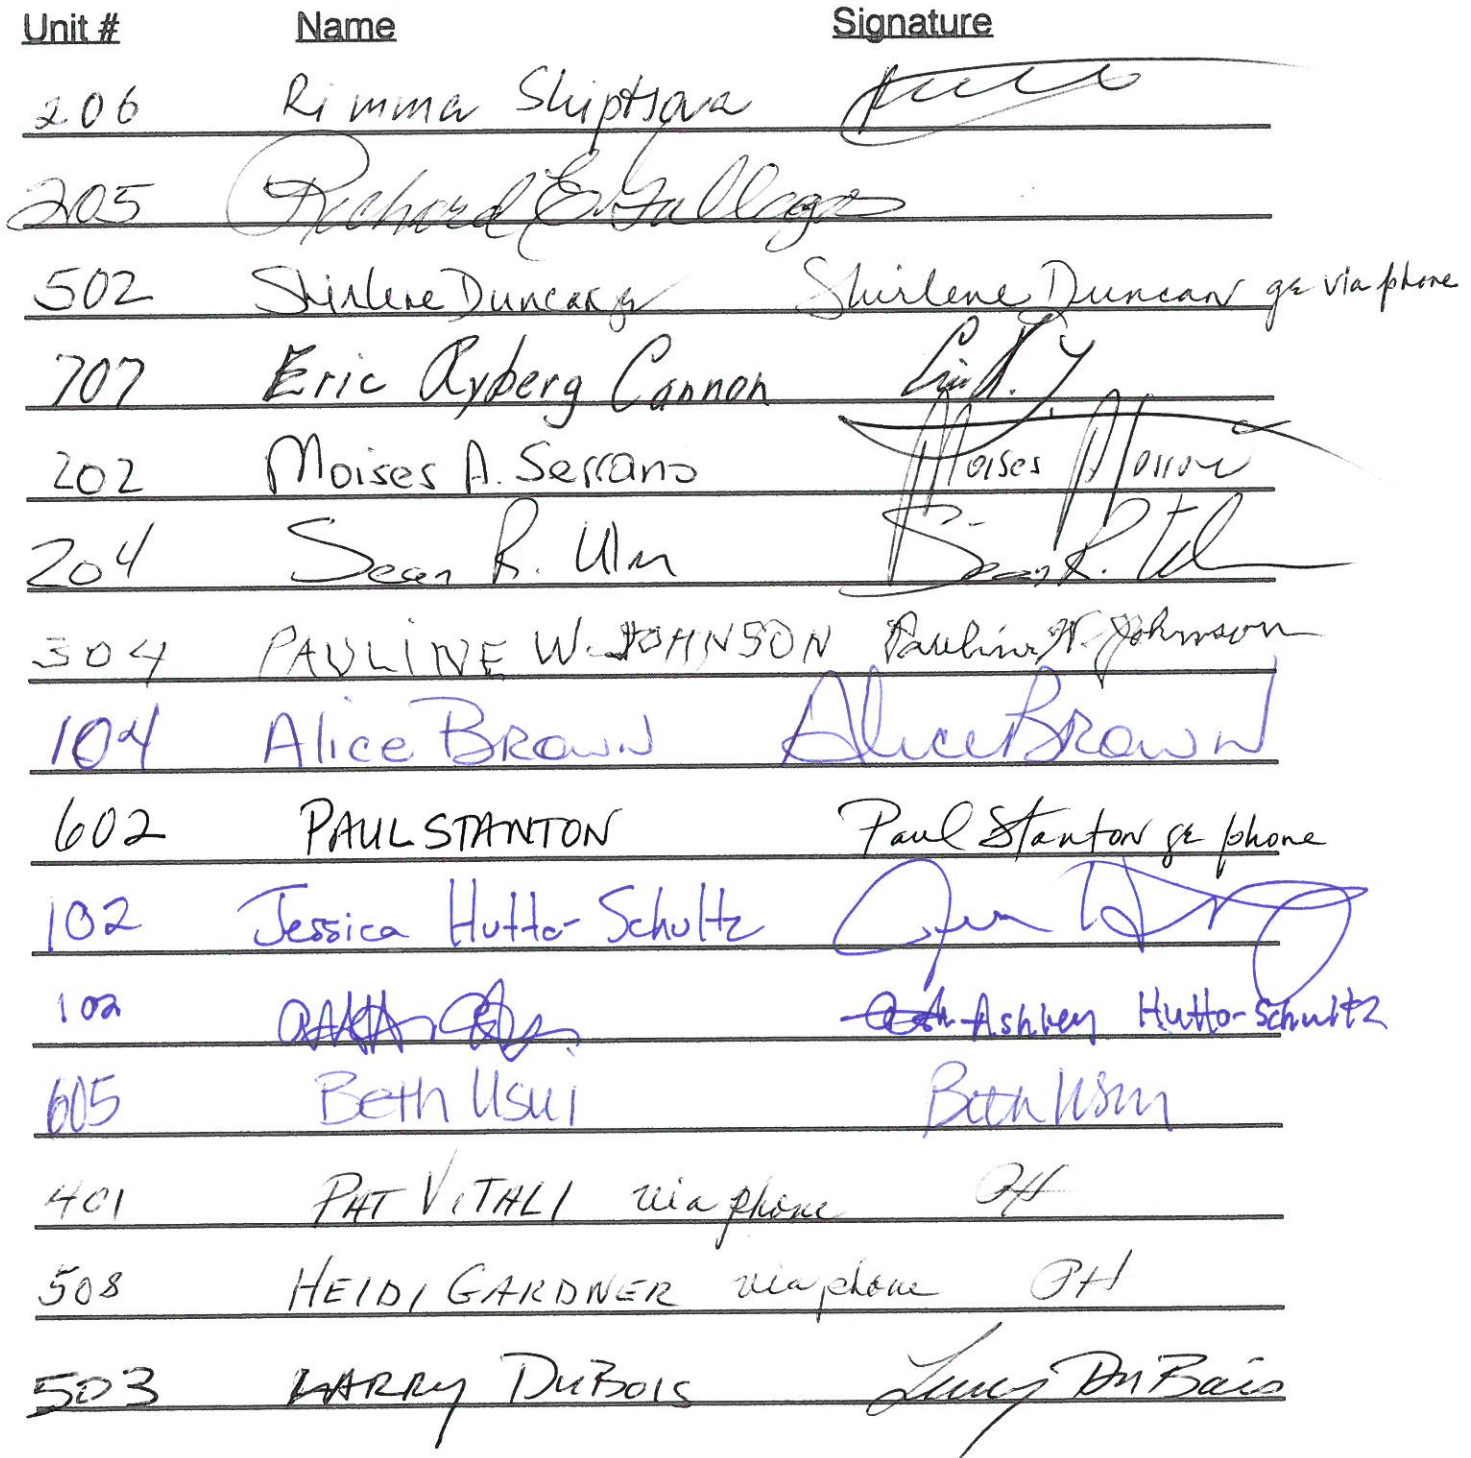 Unit # Name Signature
206 Rimma Shiptsova
205 Richard E. Gallegos
502 Shirlene Duncan Shirlene Duncan via phone
707 Eric Ryberg Cannon
202 Moises A. Serrano Moises
204 Sean R. Ulm Sean R. Ulm
304 PAULINE W. JOHNSON Pauline W. Johnson
104 Alice BROWN Alice BROWN
602 PAUL STANTON Paul Stanton phone
102 Jessica Hutto-Schultz
102 Ashley Hutto-Schultz
605 Beth Usui Beth Usui
401 PAT VITALI via phone PH
508 HEIDI GARDNER via phone PH
503 LARRY DUBOIS Larry DuBois